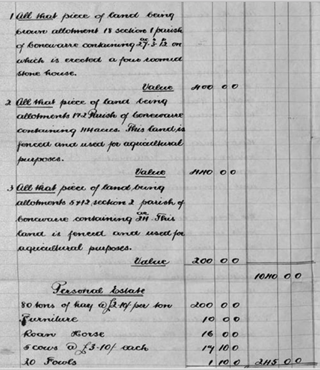 1 All that piece of land being
crown allotment 18 section 1 parish
of bonewaire containing 27. 3. 12 on
which is erected a four roomed
stone house.
Value 400 0 0
2 All that piece of land being
allotments 1+2 Parish of bonewaire
containing acres. This land is
fenced and used for agricultural
purposes.
Value 0 0
3 All that piece of land being
allotments 5+12 section 2 parish of
bonewaire containing This
land is fenced and used for
agricultural purposes.
Value 200 0 0
1040 0 0
Personal Estate
80 tons of hay @ £2-10/ per ton 200 0 0
Furniture 10 0 0
Roan Horse 16 0 0
5 cows @ £3-10/ each 17 10 0
20 Fowls 1 10 0 245 0 0